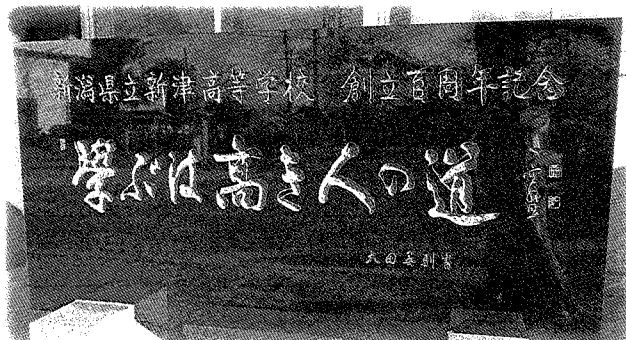 新潟県立新津高等学校 創立百周年記念
學ぶは高き人の道